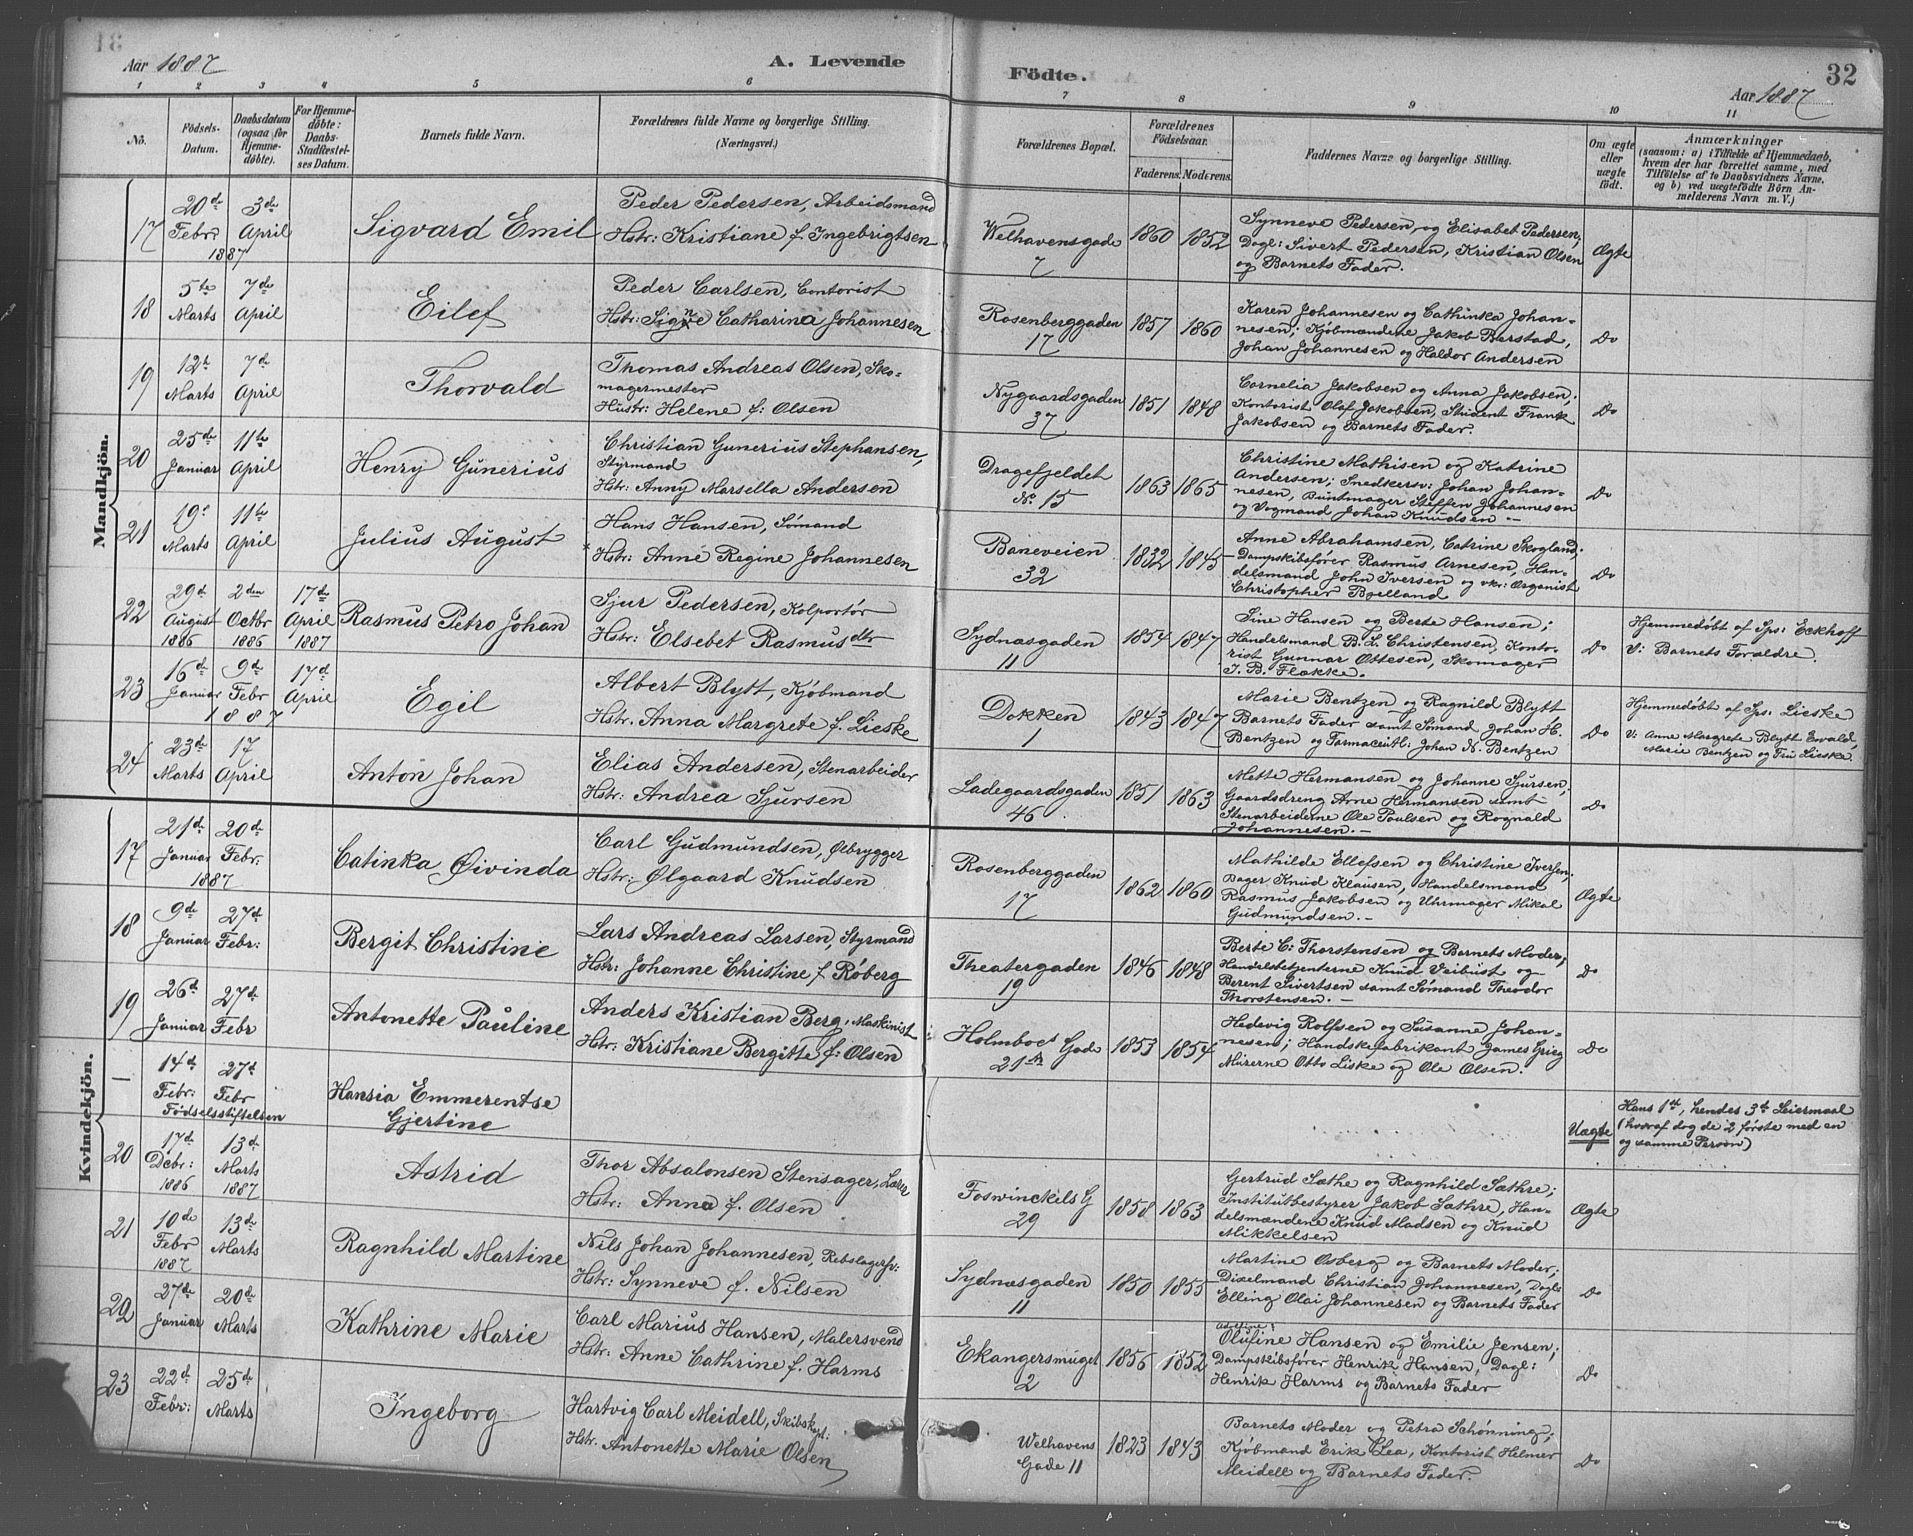 Aar 1887
A. Levende
Födte.
32
Aar 1887
1 2 3 4 5 6 7 8 9 10 11
No.
Födsels-
Datum.
Daabsdatum
(ogsaa för
Hjemme-
döbte).
For Hjemme-
döbte:
Daabs-
Stadfæstel-
ses Datum.
Barnets fulde Navn.
Forældrenes fulde Navne og borgerlige Stilling.
(Næringsvei.)
Forældrenes Bopæl.
Forældrenes
Födselsaar.
Faderens. Moderens.
Faddernes Navne og borgerlige Stilling.
Om ægte
eller
uægte
födt.
Anmærkninger
(saasom: a) i Tilfælde af Hjemmedaab,
hvem der har forrettet samme, med
Tilföielse af to Daabsvidners Navne,
og b) ved uægtefödte Börn An-
melderens Navn m. V.)
Mandkjön.
17
20de
Febr:
1887
3de
April
Sigvard Emil
Peder Pedersen, Arbeidsmand
Hstr: Kristiane f. Ingebrigtsen
Welhavensgade
7
1860 1852
Synneve Pedersen og Elisabet Pedersen;
Dagl: Sivert Pedersen, Kristian Olsen
og Barnets Fader.
Ægte
18
5te
Marts
7de
April
Eilef
Peder Carlsen, Contorist
Hstr: Signe Catharina Johannesen
Rosenberggaden
17
1857 1860
Karen Johannesen og Cathinka Johan-
nesen; Kjøbmændene Jakob Berstad,
Johan Johannesen og Haldor Andersen
Do
19
12te
Marts
7de
April
Thorvald
Thomas Andreas Olsen, Sko-
magermester
Hustr: Helene f: Olsen
Nygaardsgaden
37
1851 1848
Cornelia Jakobsen og Anna Jakobsen;
Kontorist Olaf Jakobsen, Student Frank
Jakobsen og Barnets Fader.
Do
20
25de
Januar
11te
April
Henry Gunerius
Christian Gunerius Stephansen,
Styrmand
Hstr: Anny Marsella Andersen
Dragefjeldet
No. 15
1863 1865
Christine Mathisen og Katrine
Andersen; Snedkersv: Johan Johan-
nesen, Buntmager Steffen Johannesen
og Vogmand Johan Knudsen. —
Do
21
19e
Marts
11te
April
Julius August
Hans Hansen, Sømand
Hstr: Anne Regine Johannesen
Baneveien
32
1832 1845
Anne Abrahamsen, Catrine Skogland;
Dampskibsfører Rasmus Arnesen, Han-
delsmand John Iversen og vkr: Organist
Christopher Bjelland
Do
22
29d
August
1886
2den
Octbr
1886
17de
April
1887
Rasmus Petro Johan
Sjur Pedersen, Kolportør
Hstr: Elsebet Rasmusdtr
Sydnæsgaden
11
1854 1847
Sine Hansen og Berte Hansen;
Handelsmand B. L. Christensen, Konto-
rist Gunnar Ottesen, Skomager
J. B. Flække.
Do
Hjemmedøbt af Sps: Eckhoff
V: Barnets Forældre.
23
16de
Januar
9d
Febr
1887
17d
April
Egil
Albert Blytt, Kjøbmand
Hstr. Anna Margrete f. Lieske
Dokken
1
1843 1847
Marie Bentzen og Ragnild Blytt
Barnets Fader samt Sømand Johan H.
Bentzen og Farmaceutl: Johan N. Bentzen
Do
Hjemmedøbt af Sps: Lieske
V: Anne Margrete Blytt Ewald,
Marie Bentzen og Fru Lieske.
24
23de
Marts
17
April
Anton Johan
Elias Andersen, Stenarbeider
Hstr: Andrea Sjursen
Ladegaardsgaden
46
1851 1863
Mette Hermansen og Johanne Sjursen;
Gaardsdreng Arne Hermansen samt
Stenarbeiderne Ole Poulsen og Rognald
Johannesen. —
Do
Kvindekjön.
17
21de
Januar
20de
Febr.
1887
Catinka Øivinda
Carl Gudmundsen, Ølbrygger
Hstr: Ølgaard Knudsen
Rosenberggaden
17
1862 1860
Mathilde Ellefsen og Christine Iversen;
Bager Knud Klausen, Handelsmand
Rasmus Jakobsen og Uhrmager Mikal
Gudmundsen. —
Ægte
18
9de
Januar
27de
Febr:
Bergit Christine
Lars Andreas Larsen, Styrmand
Hstr: Johanne Christine f. Røberg
Theatergaden
19
1846 1848
Berte C: Thorstensen og Barnets Moder;
Handelsbetjenterne Knud Veibust og
Berent Sivertsen samt Sømand Theodor
Thorstensen. —
Do
19
26d
Januar
27de
Febr
Antonette Pauline
Anders Kristian Berg, Maskinist
Hstr: Kristiane Bergitte f: Olsen
Holmboes Gade
21
1853 1854
Hedevig Rolfsen og Susanne Johan-
nesen; Handskefabrikant James Grieg
Murerne Otto Liske og Ole Olsen.
Do
—
14d
Febr:
27d
Febr
Fødselsstiftelsen
Hansia Emmerentse
Gjertine
Uægte
Hans 1ste, hendes 3de Leiermaal
(hvoraf dog de 2 første med en
og samme Person)
20
17de
Decbr:
1886
13de
Marts
1887
Astrid
Thor Absalonsen Stensager, Lærer
Hstr: Anna f. Olsen
Foswinckels G
29
1858 1863
Gjertrud Sæthe og Ragnhild Sæthre;
Institutbestyrer Jakob Sæthre, Han-
delsmændene Knud Madsen og Knud
Mikkelsen
Ægte
21
10de
Febr
1887
13de
Marts
Ragnhild Martine
Nils Johan Johannesen, Rebslagersv:
Hstr: Synneve f. Nilsen
Sydnæsgaden
11
1850 1855
Martine Osberg og Barnets Moder;
Dixelmand Christian Johannesen, Dagl:
Elling Olai Johannesen og Barnets Fader
Do
22
27de
Januar
20de
Marts
Kathrine Marie
Carl Marius Hansen, Malersvend
Hstr: Anne Cathrine f. Harms
Ekangersmuget
2
1856 1852
Olufine Hansen og Emilie Jensen;
Dampskibsfører Henrik Hansen, Dagl:
Henrik Harms og Barnets Fader
Do
23
22de
Febr:
25de
Marts
Ingeborg
Hartvig Carl Meidell, Skibskapt:
Hstr. Antonette Marie Olsen
Welhavens
Gade 11
1823 1843
Barnets Moder og Petra Schønning;
Kjøbmand Erik Lea, Kontorist Helmer
Meidell og Barnets Fader.
Do